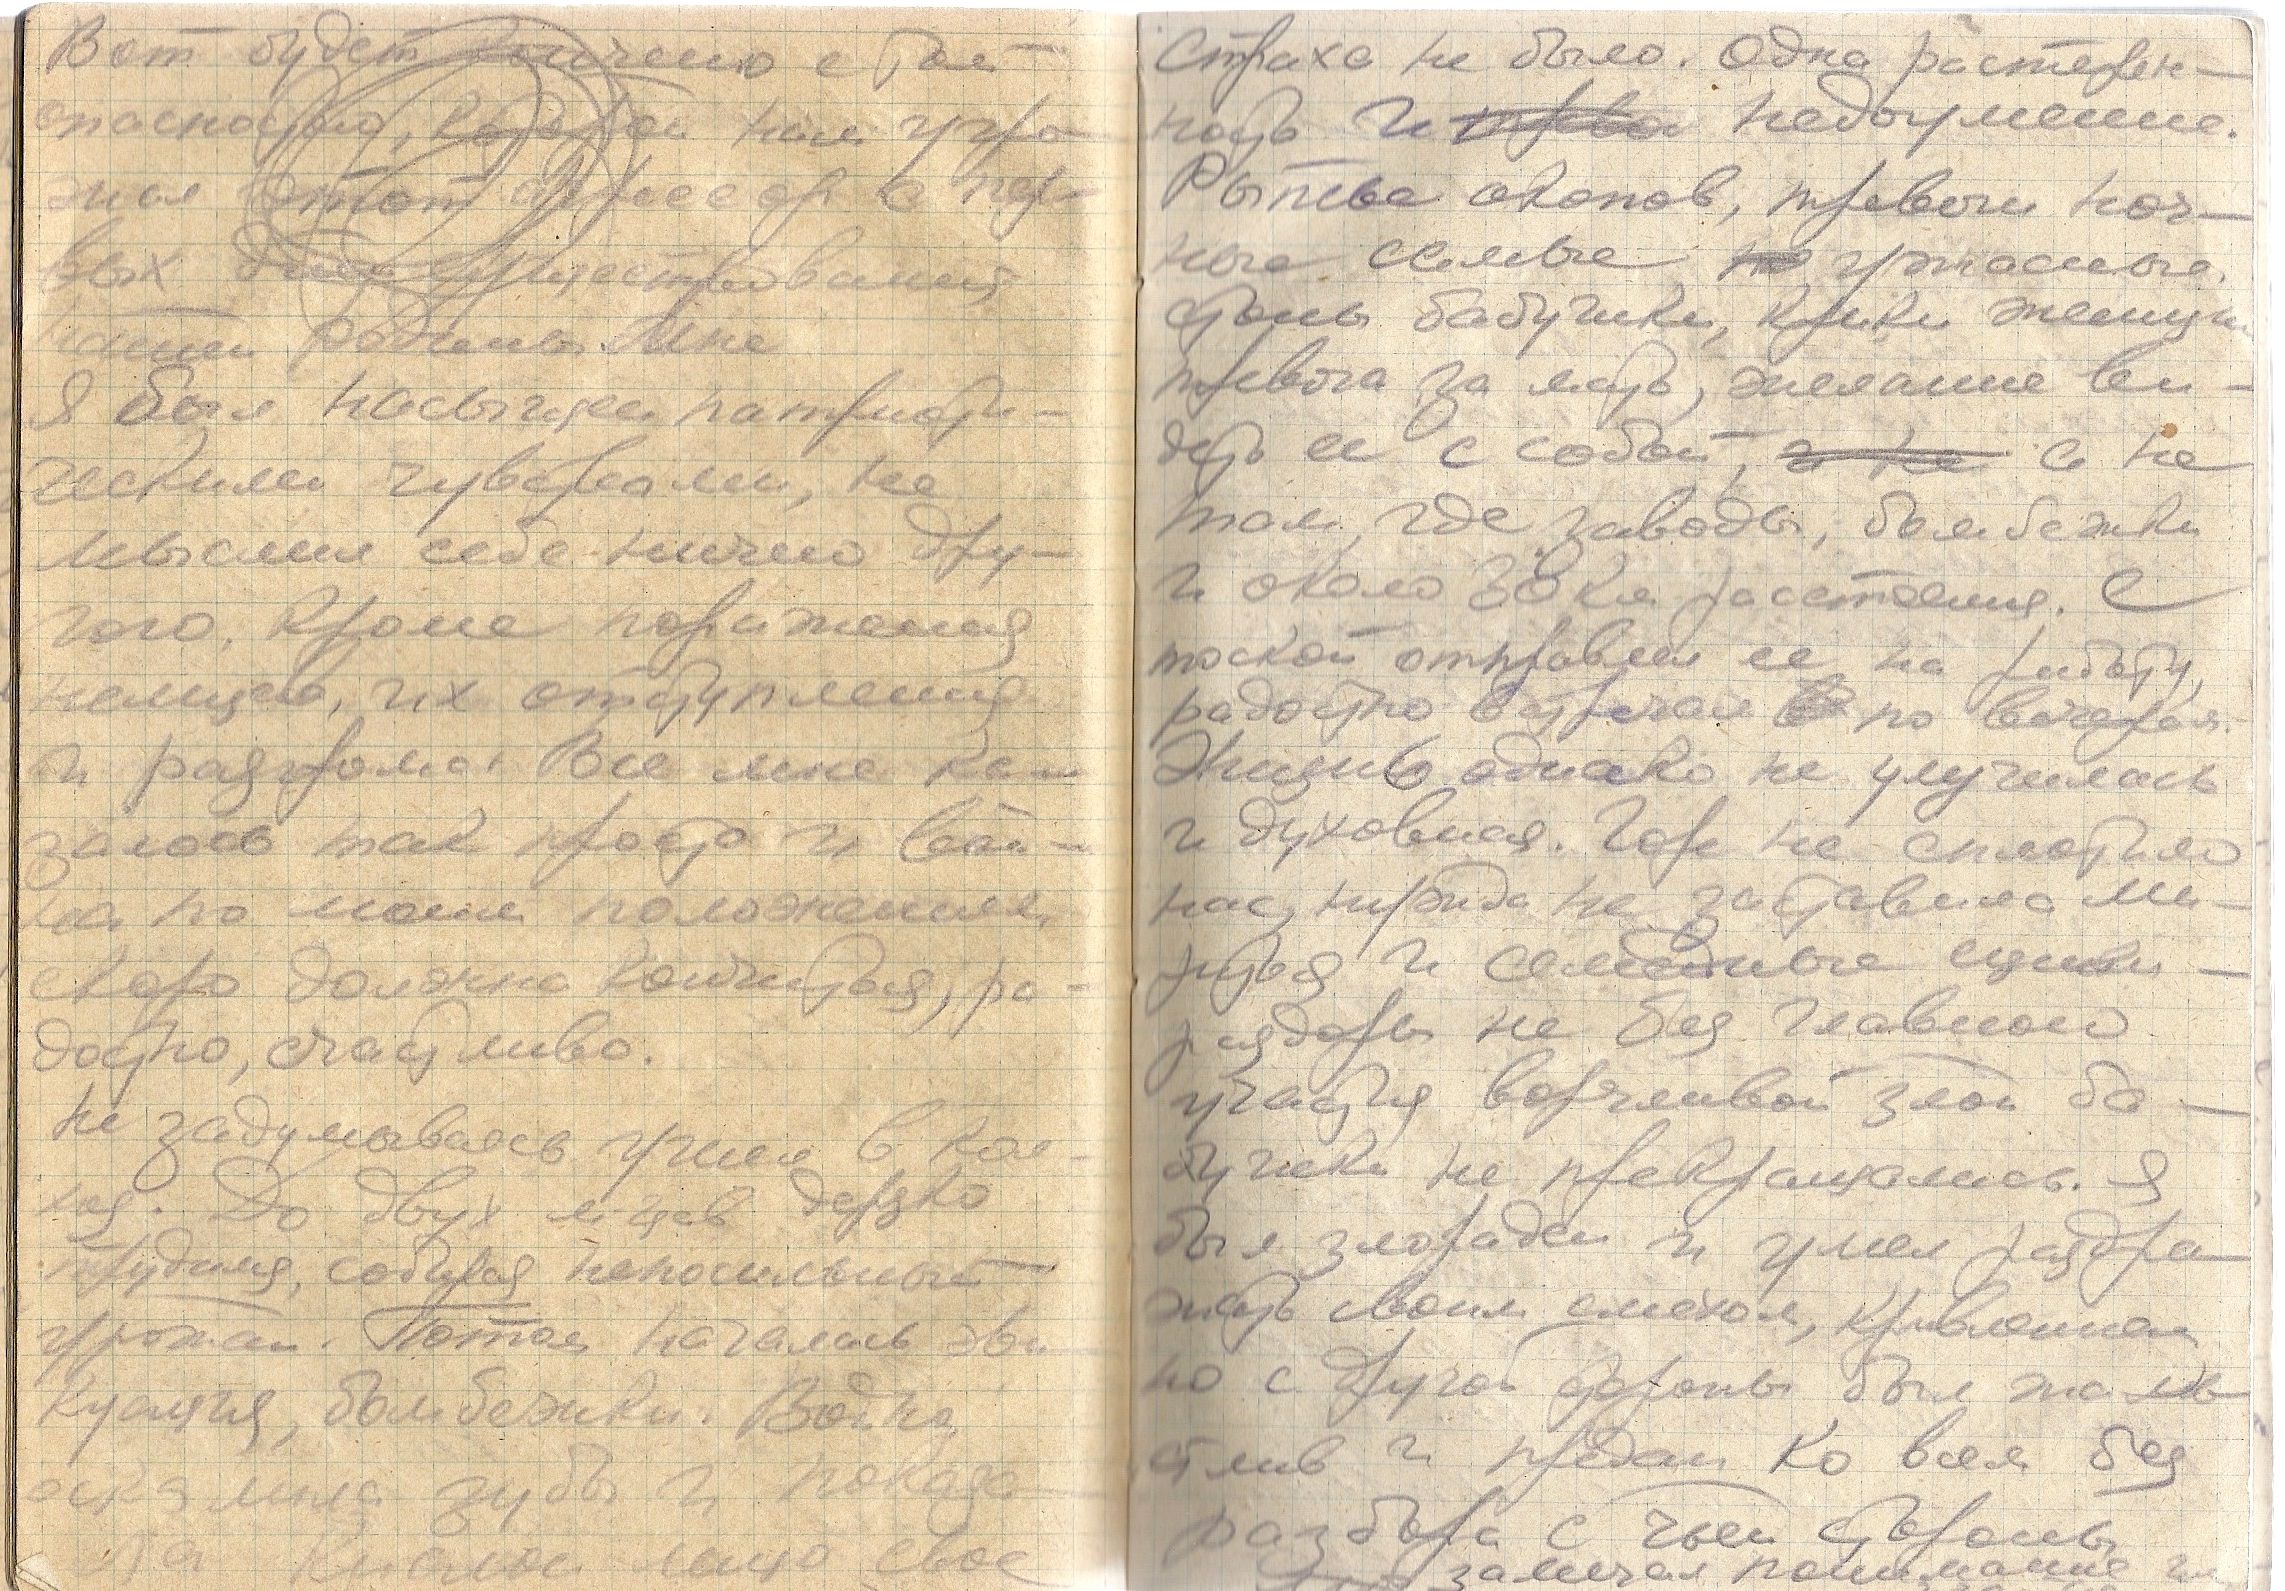 Вот будет кончено с той
опасностью, которой нам угро-
жал этот агрессор с пер-
вых дней существования
нашей родины. Мне
Я был насыщен патриоти-
ческими чувствами, не
мыслил себе ничего дру-
гого, кроме поражения
немцев, их отступления
и разгрома. Все мне ка-
залось так просто и вой-
на по моим положениям,
скоро должна кончиться, ра-
достно, счастливо.
Не задумываясь ушел в кол-
хоз. До двух м-цев дерзко
трудился, собирая непосильный
урожай. Потом начались эва-
куация, бомбежки. Война
оскалила зубы и показа-
ла лицо свое
Страха не было. Одна растерян-
ность и недоумение.
Рытье окопов, тревоги ноч-
ные самые ужасные,
стоны бабушки, крики женщин
тревога за мать, желание ви-
деть ее с собой, а не
там, где заводы, бомбежки
и около 30 км расстояния. С
тоской отправлял ее на работу,
радостно встречал по вечерам.
Жизнь однако не улучшилась
и духовная. Горе не сплотило
нас, нужда не заставила ми-
риться и семейные
раздоры не без главного
участия ворчливой злой ба-
бушки не прекращались. Я
был злораден и умел раздра-
жать своим смехом, кривлянием
но с другой стороны был жало-
стлив и предан ко всем без
разбора с чьей стороны
замечал понимание и